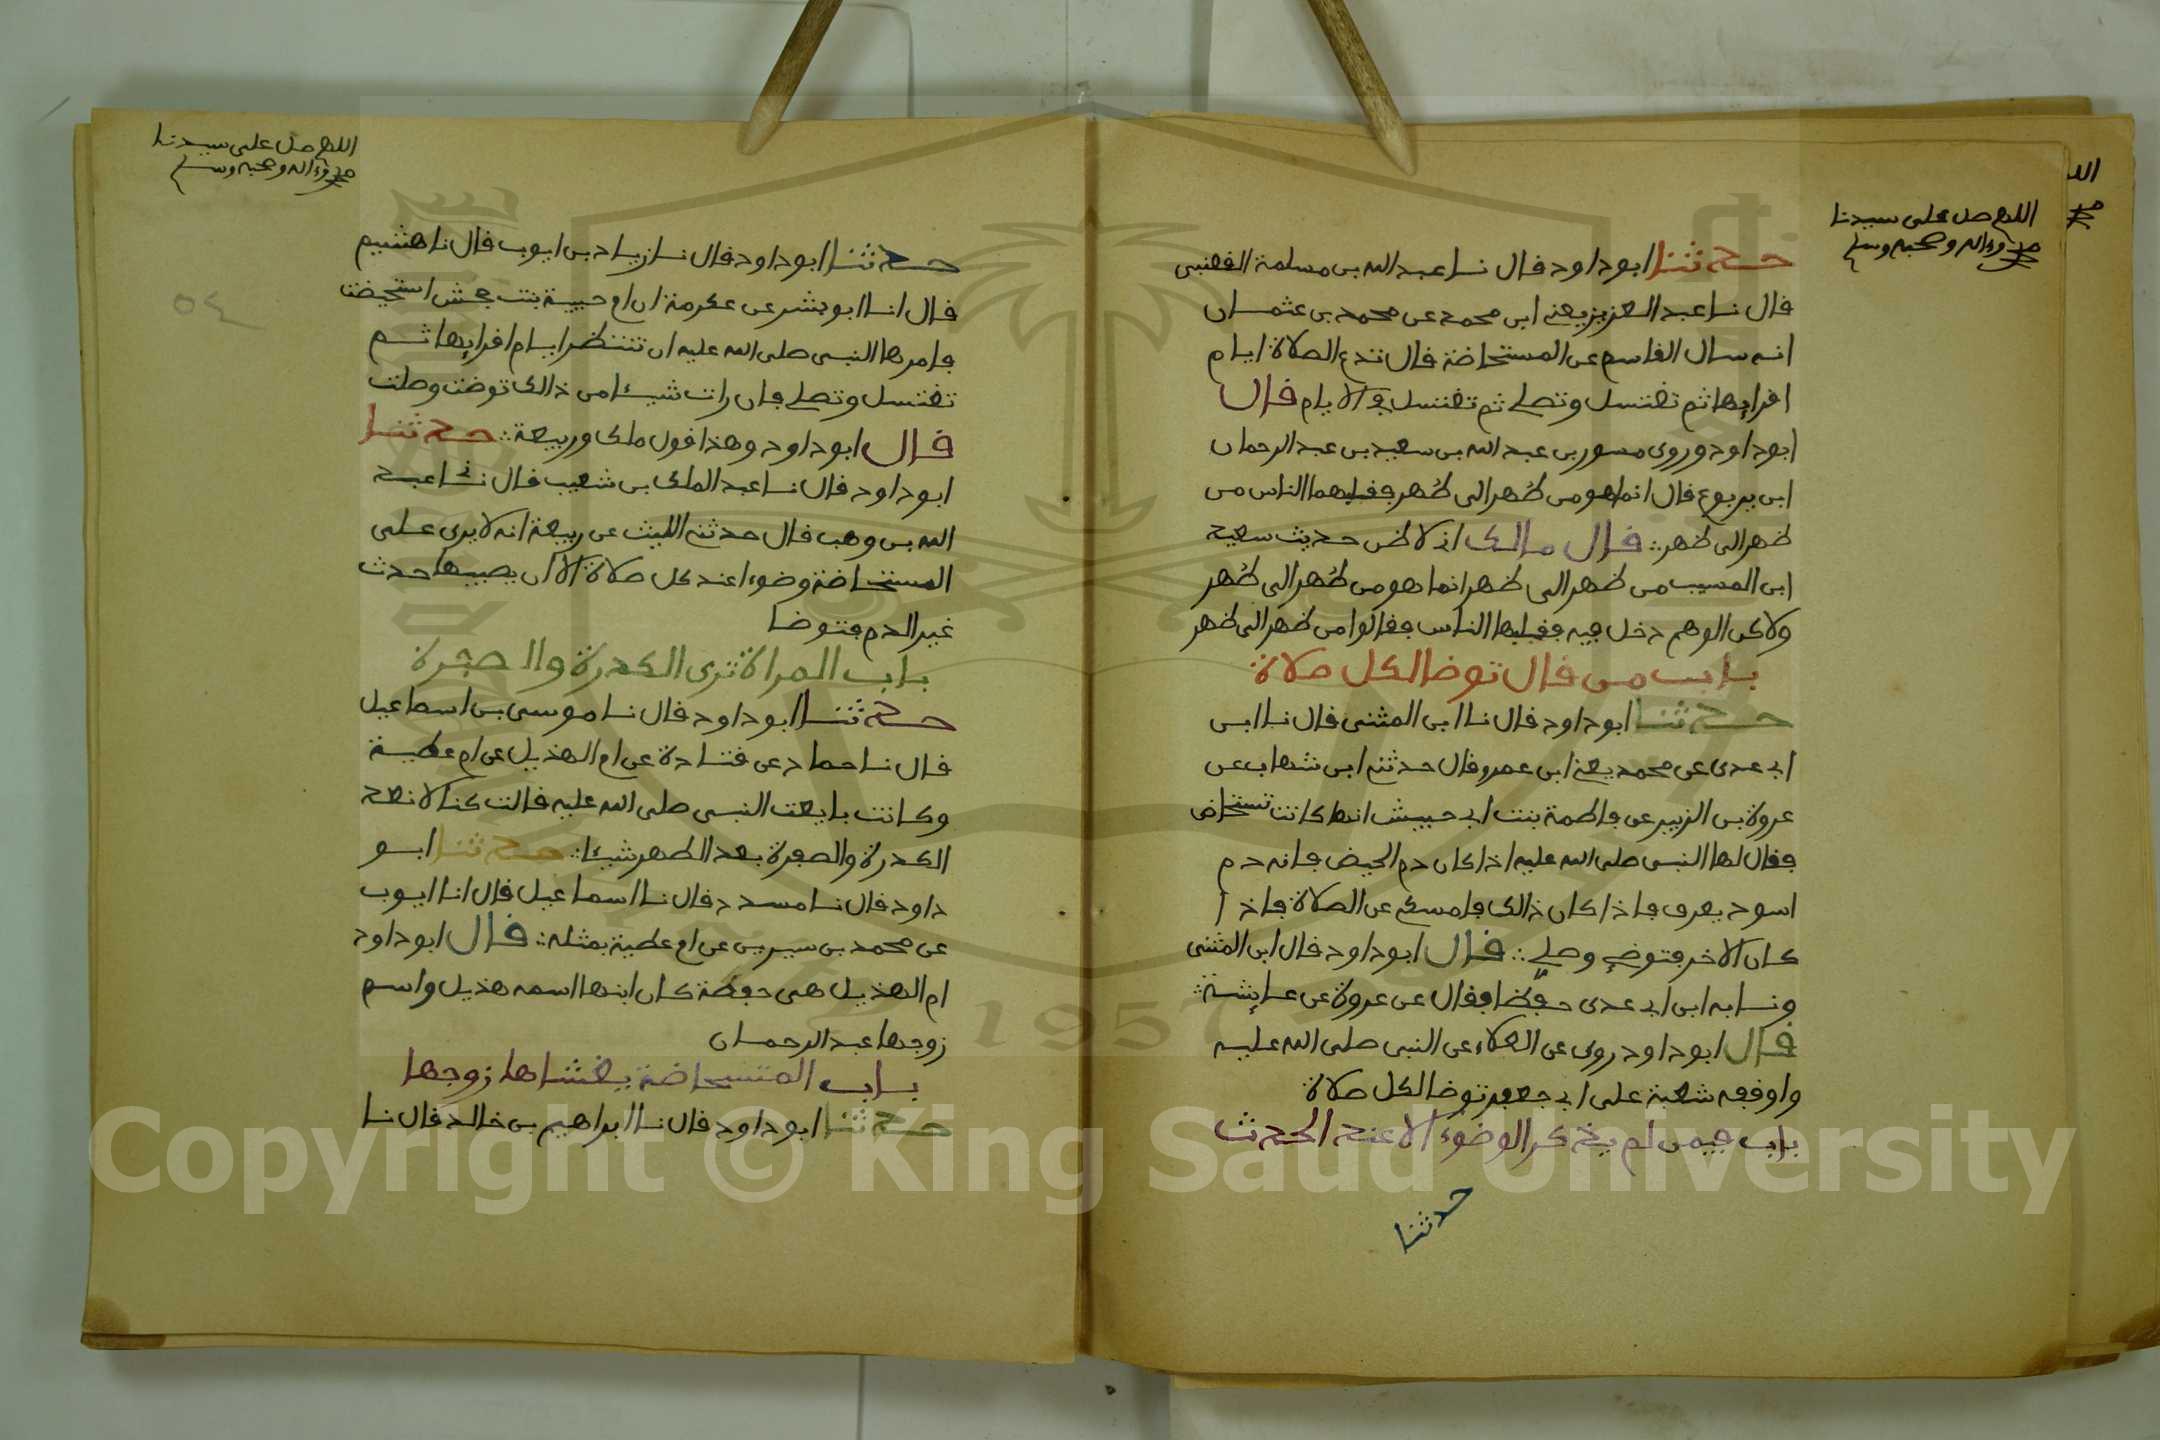 اللهم صل على سيدنا
محمد وءاله وصحبه وسلم
حدثنا ابو داود قال نا عبد الله بن مسلمة القعنبي
قال نا عبد العزيز يعني ابن محمد عن محمد بن عثمان
انه سال القاسم عن المستحاضة قال تدع الصلاة ايام
اقرايها ثم تغتسل وتصلي ثم تغتسل في الايام قال
ابو داود وروى مسور بن عبد الله بن سعيد بن عبد الرحمان
ابن يربوع قال انما هو من طهر الى طهر فقلبهما الناس من
ظهر الى ظهر قال مالك اني لاظن حديث سعيد
ابن المسيب من ظهر الى ظهر انما هو من طهر الى طهر
ولاكن الوهم دخل فيه فقلبها الناس فقالوا من ظهر الى ظهر
باب من قال توضا لكل صلاة
حدثنا ابو داود قال نا ابن المثنى قال نا ابن
ابي عدي عن محمد يعني ابن عمرو قال حدثني ابن شهاب عن
عروة بن الزبير عن فاطمة بنت ابي حبيش انها كانت تستحاض
فقال لها النبي صلى الله عليه اذا كان دم الحيض فانه دم
اسود يعرف فاذا كان ذالك فامسكي عن الصلاة فاذا
كان الاخر فتوضي وصلي قال ابو داود قال ابن المثنى
ونا به ابن ابي عدي حفظا فقال عن عروة عن عايشة
قال ابو داود روى عن العلاء عن النبي صلى الله عليه
واوقفه شعبة على ابي جعفر توضا لكل صلاة
باب فيمن لم يذكر الوضوء الا عند الحدث
حدثنا
اللهم صل على سيدنا
محمد وءاله وصحبه وسلم
٥٤
حدثنا ابو داود قال نا زياد بن ايوب قال نا هشيم
قال انا ابو بشر عن عكرمة ان ام حبيبة بنت جحش استحيضت
فامرها النبي صلى الله عليه ان تنتظر ايام اقرايها ثم
تغتسل وتصلي فان رات شيئا من ذالك توضت وصلت
قال ابو داود وهذا قول ملك وربيعة حدثنا
ابو داود قال نا عبد الملك بن شعيب قال نا عبد
الله بن وهب قال حدثني الليث عن ربيعة انه لا يرى على
المستحاضة وضوءا عند كل صلاة الا ان يصيبها حدث
غير الدم فتوضا
باب المراة ترى الكدرة والصفرة
حدثنا ابو داود قال نا موسى بن اسماعيل
قال نا حماد عن قتادة عن ام الهذيل عن ام عطية
وكانت بايعت النبي صلى الله عليه قالت كنا لا نعد
الكدرة والصفرة بعد الطهر شيئا حدثنا ابو
داود قال نا مسدد قال نا اسماعيل قال انا ايوب
عن محمد بن سيرين عن ام عطية بمثله قال ابو داود
ام الهذيل هي حفصة كان ابنها اسمه هذيل واسم
زوجها عبد الرحمان
باب المتسحاضة يغشاها زوجها
حدثنا ابو داود قال نا ابراهيم بن خالد قال نا
1957
Copyright © King Saud University